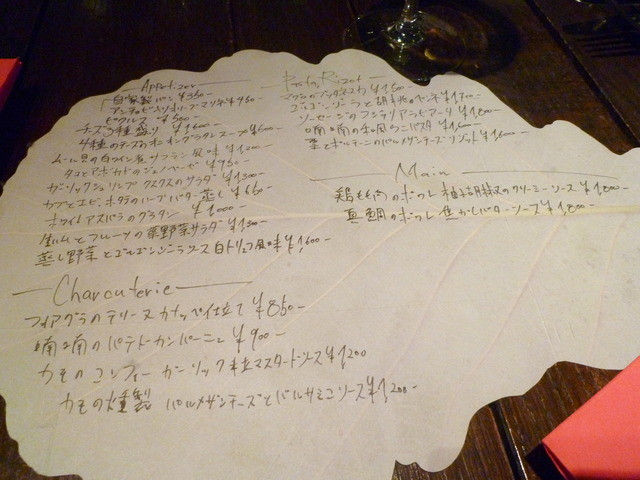 Appetizer
自家製パン ¥350
アンチョビ入りオリーブマリネ ¥450
ピクルス ¥500
チーズ3種盛り ¥1600
4種のチーズのオニオングラタンスープ ¥600
ムール貝の白ワイン蒸 サフラン風味 ¥1200
タコとアボカドのジェノベーゼ ¥950
ガーリックシュリンプ クスクスのサラダ ¥1300
カブとエビ、ホタテのハーブバター蒸し ¥650
ホワイトアスパラのグラタン ¥1000
生ハムとフルーツの葉野菜サラダ ¥1300
蒸し野菜とゴルゴンゾーラソース 白トリュフ風味 ¥1,600-
Charcuterie
フォアグラのテリーヌ カナッペ仕立て ¥850-
喃喃のパテドカンパーニュ ¥900-
カモのコンフィー ガーリック粒マスタードソース ¥1,200
カモの燻製 パルメザンチーズとバルサミコソース ¥1,200-
Pasta, Rizot
¥1500
ゴルゴンゾーラと胡桃のペンネ ¥1700-
ソーセージのフジッリアラビアータ ¥1,800
喃喃の和風カニパスタ
栗とポルチーニのパルメザンチーズリゾット ¥1600-
Main
鶏もも肉のポワレ 柚子胡椒のクリーミーソース ¥1800-
真鯛のポワレ 焦がしバターソース ¥1,800-